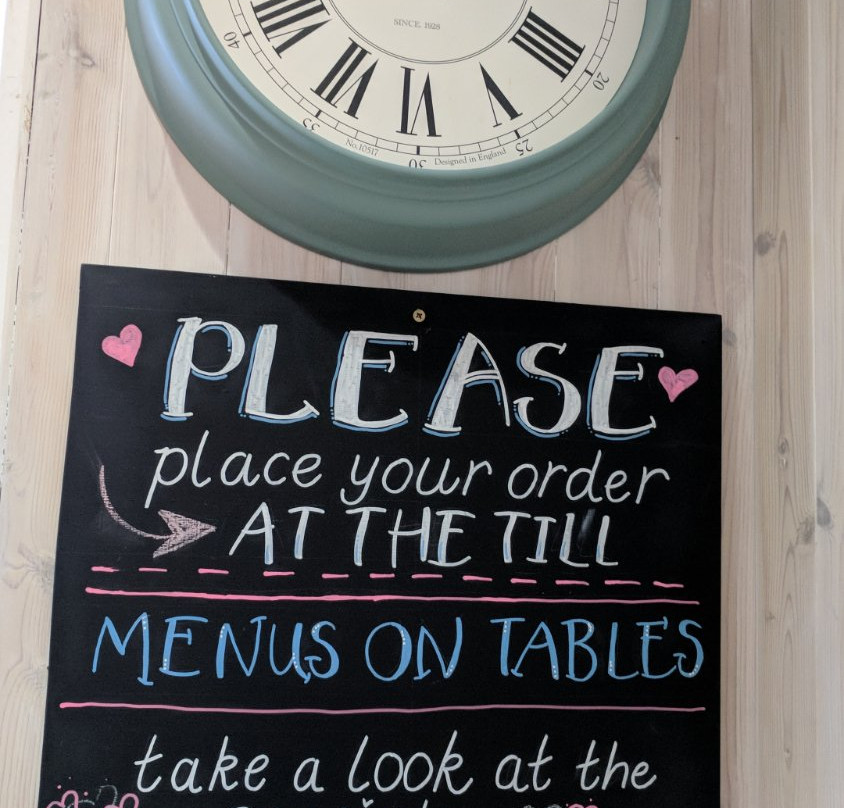 SINCE. 1928
VIII VII VI V IIII
40 35 30 25 20
No.10517 Designed in England
PLEASE
place your order
AT THE TILL
MENUS ON TABLES
take a look at the